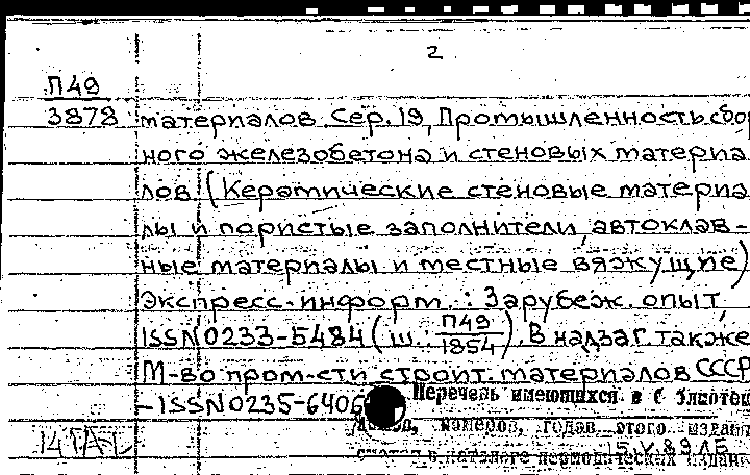 2
П49
3878
материалов. Сер. 19, Промышленность сбор
ного железобетона и стеновых материа
лов (Керамические стеновые материа
лы и пористые заполнители, автоклав-
ные материалы и местные вяжущие)
Экспресс-информ.: Зарубеж. опыт,
ISSN 0233-5484 (ш. П49/1854). В надзаг. также:
М-во пром-сти строит. материалов СССР
-ISSN 0235-6406
Перечень имеющихся в
номеров, годов этого издан
каталоге периодических издан
15.V.89